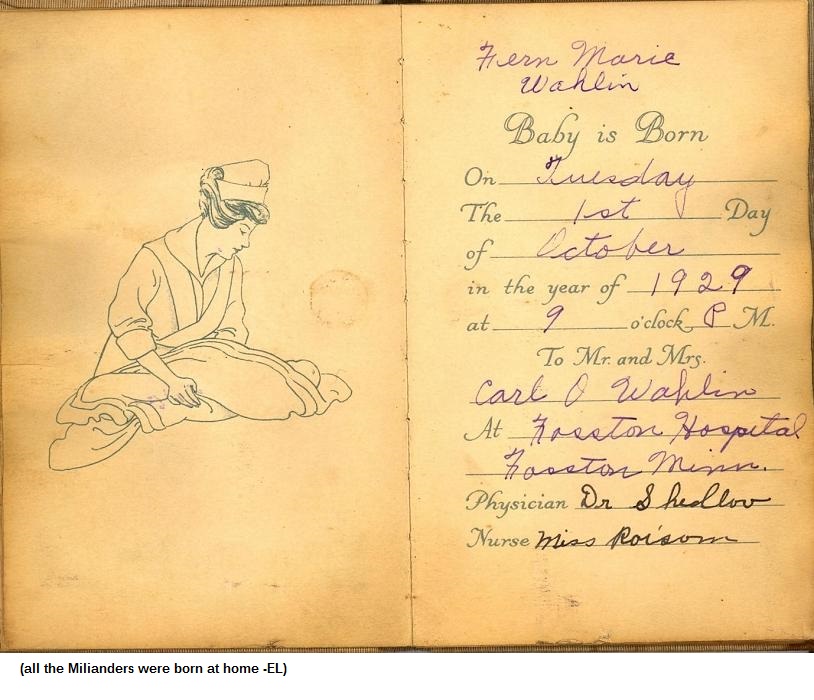 Fern Marie
Wahlin
Baby is Born
On Tuesday
The 1st Day
of October
in the year of 1929
at 9 o'clock P M.
To Mr. and Mrs.
Carl O Wahlin
At Fosston Hospital
Fosston Minn.
Physician Dr Shedlov
Nurse Miss Roisom
(all the Milianders were born at home -EL)